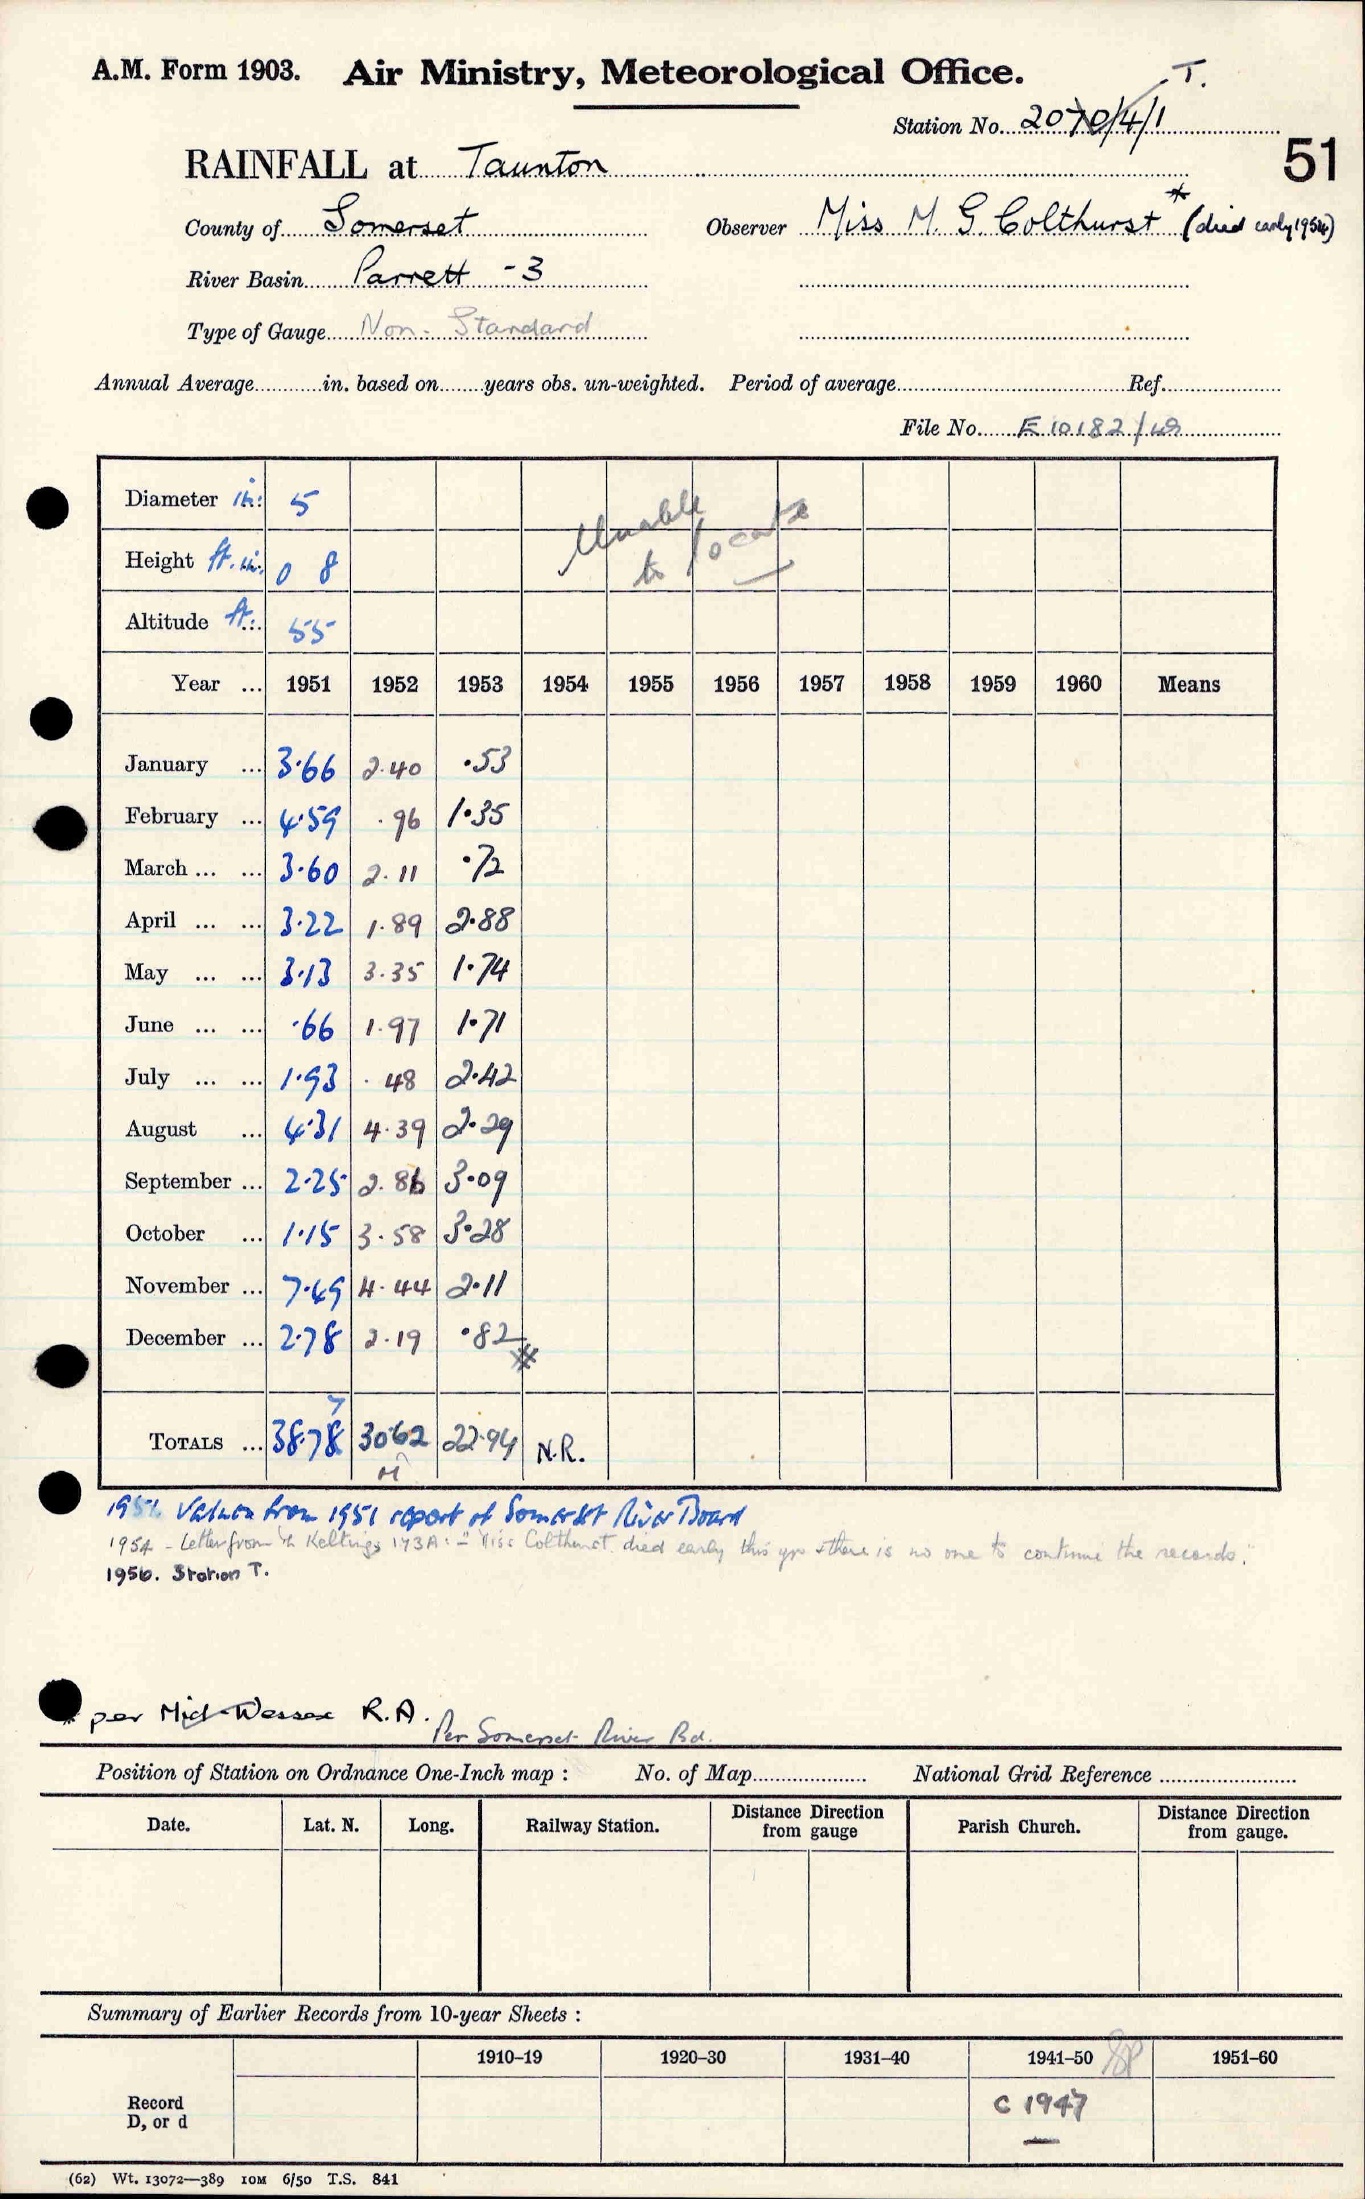 A.M. Form 1903. Air Ministry, Meteorological Office.
T.
Station No. 2070/4/1
51
RAINFALL at Taunton
County of Somerset Observer Miss M. G. Colthurst * (died early 1954)
River Basin Parrett - 3
Type of Gauge Non-Standard
Annual Average in. based on years obs. un-weighted. Period of average Ref.
File No. E 10182/49
Diameter in: 5
Unable to locate
Height ft. in. 0 8
Altitude ft. 55
Year ... 1951 1952 1953 1954 1955 1956 1957 1958 1959 1960 Means
January ... 3.66 2.40 .53
February ... 4.59 .96 1.35
March ... ... 3.60 2.11 .72
April ... ... 3.22 1.89 2.88
May ... ... 3.13 3.35 1.74
June ... ... .66 1.97 1.71
July ... ... 1.93 .48 2.42
August ... 4.31 4.39 2.29
September ... 2.25 2.86 3.09
October ... 1.15 3.58 3.28
November ... 7.49 4.44 2.11
December ... 2.78 2.19 .82
7
TOTALS ... 38.78 30.62 22.94 N.R.
M
1951 Values from 1951 report of Somerset River Board
1954 - Letter from Keltings 173A: - "Miss Colthurst died early this yr & there is no one to continue the records."
1956. Station T.
* per Mid-Wessex R.A. Per Somerset River Bd.
Position of Station on Ordnance One-Inch map : No. of Map National Grid Reference
Date. Lat. N. Long. Railway Station. Distance Direction from gauge Parish Church. Distance Direction from gauge.
Summary of Earlier Records from 10-year Sheets :
1910–19 1920–30 1931–40 1941–50 1951–60
Record D, or d C 1947
(62) Wt. 13072—389 10M 6/50 T.S. 841